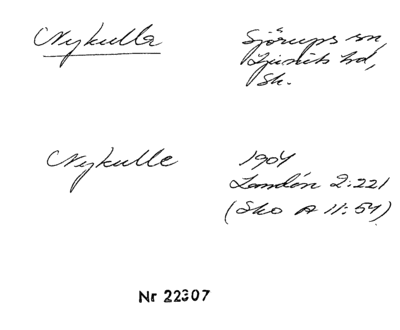 Nykulla
Sjörups sn,
Ljunits hd,
Sk.
Nykulle
1904
Landén 2:221
(Sko A 11:54)
Nr 22307